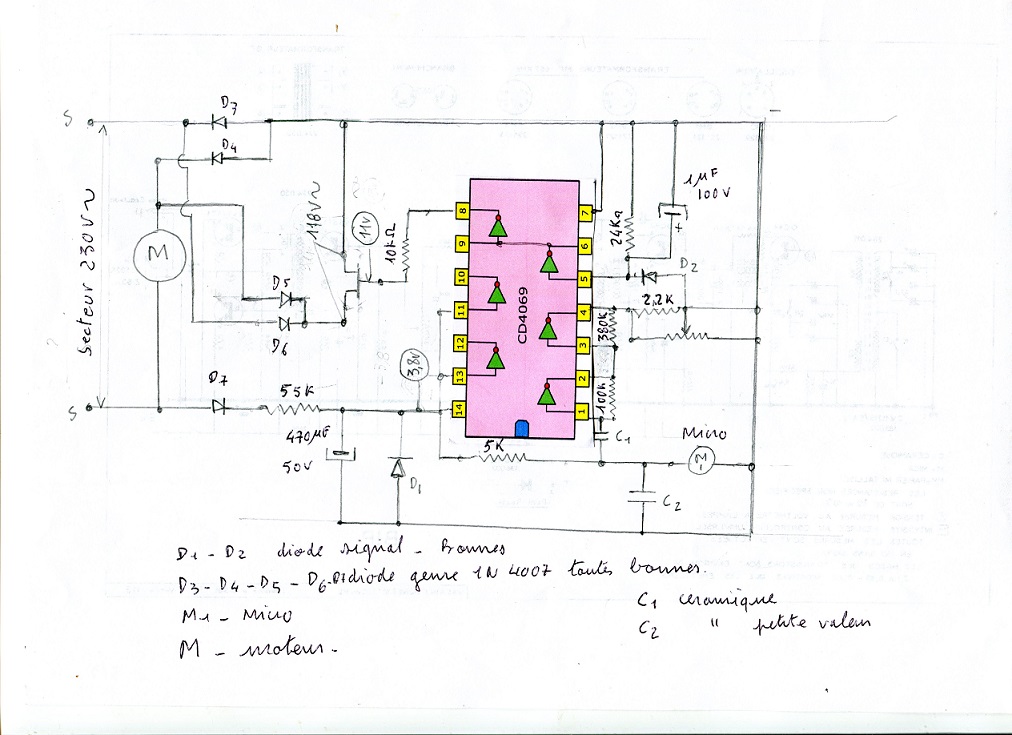 S
D3
D4
-
Secteur 230V~
M
118V~
11V
10kΩ
8
9
10
11
12
13
14
CD4069
7
6
5
4
3
2
1
24K
1µF
100V
+
D2
2,2K
380K
100K
D5
D6
3,8V
S
D7
55K
470µF
50V
D1
5K
C1
Micro
M
C2
D1 - D2 diode signal - Bonnes
D3 - D4 - D5 - D6 - D7 diode genre 1N 4007 toutes bonnes.
M1 - Micro
M - moteur -
C1 ceramique
C2 " petite valeur